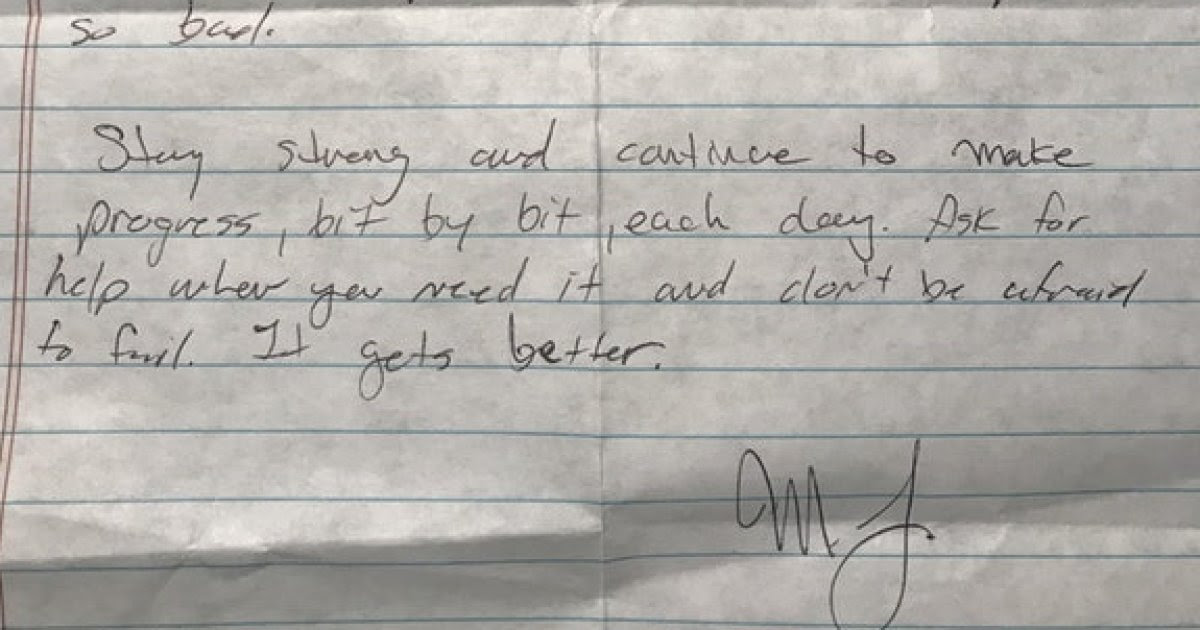 so bad.
Stay strong and continue to make
progress, bit by bit, each day. Ask for
help when you need it and don't be afraid
to fail. It gets better.